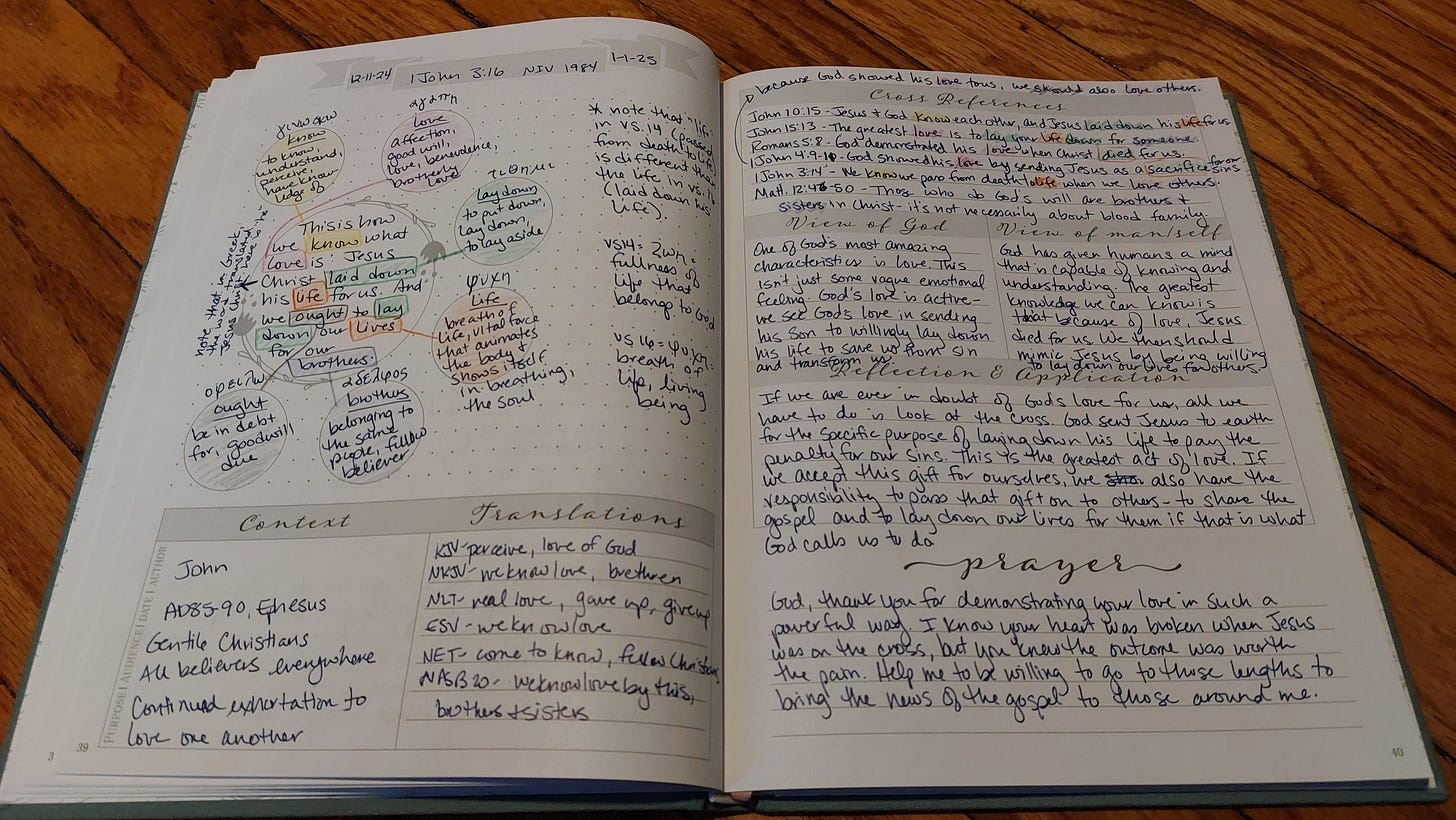 12-11-24
1 John 3:16 NIV 1984
1-1-25
γινωσκω
know
to know,
understand,
perceive,
have know
ledge of
αγαπη
love
affection,
good will,
love, benevolence,
brotherly
love
τιθημι
lay down
to put down,
lay down,
to lay aside
This is how
we know what
love is: Jesus
Christ laid down
his life for us. And
we ought to lay
down our lives
for our
brothers.
note that in Greek,
the word translated
Jesus Christ here is he
ψυχη
life
breath of
life, vital force
that animates
the body &
shows itself
in breathing,
the soul
οφειλω
ought
be in debt
for, goodwill
due
αδελφος
brothers
belonging to
the same
people, fellow
believer
* note that "life"
in vs.14 (passed
from death to life)
is different than
the life in vs.16
(laid down his
life).
vs14= ζωη=
fullness of
life that
belongs to God
vs 16= ψυχη=
breath of
life, living
being
Context
PURPOSE | AUDIENCE | DATE | AUTHOR
John
AD85-90, Ephesus
Gentile Christians
All believers everywhere
Continued exhortation to
love one another
Translations
KJV- perceive, love of God
NKJV- we know love, brethren
NLT- real love, gave up, give up
ESV- we know love
NET- come to know, fellow Christians
NASB20- we know love by this,
brothers + sisters
3
39
because God showed his love to us, we should also love others.
Cross References
John 10:15 - Jesus & God know each other, and Jesus laid down his life for us
John 15:13 - The greatest love is to lay your life down for someone.
Romans 5:8 - God demonstrated his love when Christ died for us.
1 John 4:9-10 - God showed his love by sending Jesus as a sacrifice for our sins
1 John 3:14 - We know we pass from death to life when we love others.
Matt. 12:46-50 - Those who do God's will are brothers +
sisters in Christ - it's not necessarily about blood family
View of God
One of God's most amazing
characteristics is love. This
isn't just some vague emotional
feeling. God's love is active-
we see God's love in sending
his Son to willingly lay down
his life to save us from sin
and transform us.
View of man/self
God has given humans a mind
that is capable of knowing and
understanding. The greatest
knowledge we can know is
that because of love, Jesus
died for us. We then should
mimic Jesus by being willing
to lay down our lives for others.
Reflection & Application
If we are ever in doubt of God's love for us, all we
have to do is look at the cross. God sent Jesus to earth
for the specific purpose of laying down his life to pay the
penalty for our sins. This is the greatest act of love. If
we accept this gift for ourselves, we also have the
responsibility to pass that gift on to others - to share the
gospel and to lay down our lives for them if that is what
God calls us to do
prayer
God, thank you for demonstrating your love in such a
powerful way. I know your heart was broken when Jesus
was on the cross, but you knew the outcome was worth
the pain. Help me to be willing to go to those lengths to
bring the news of the gospel to those around me.
40